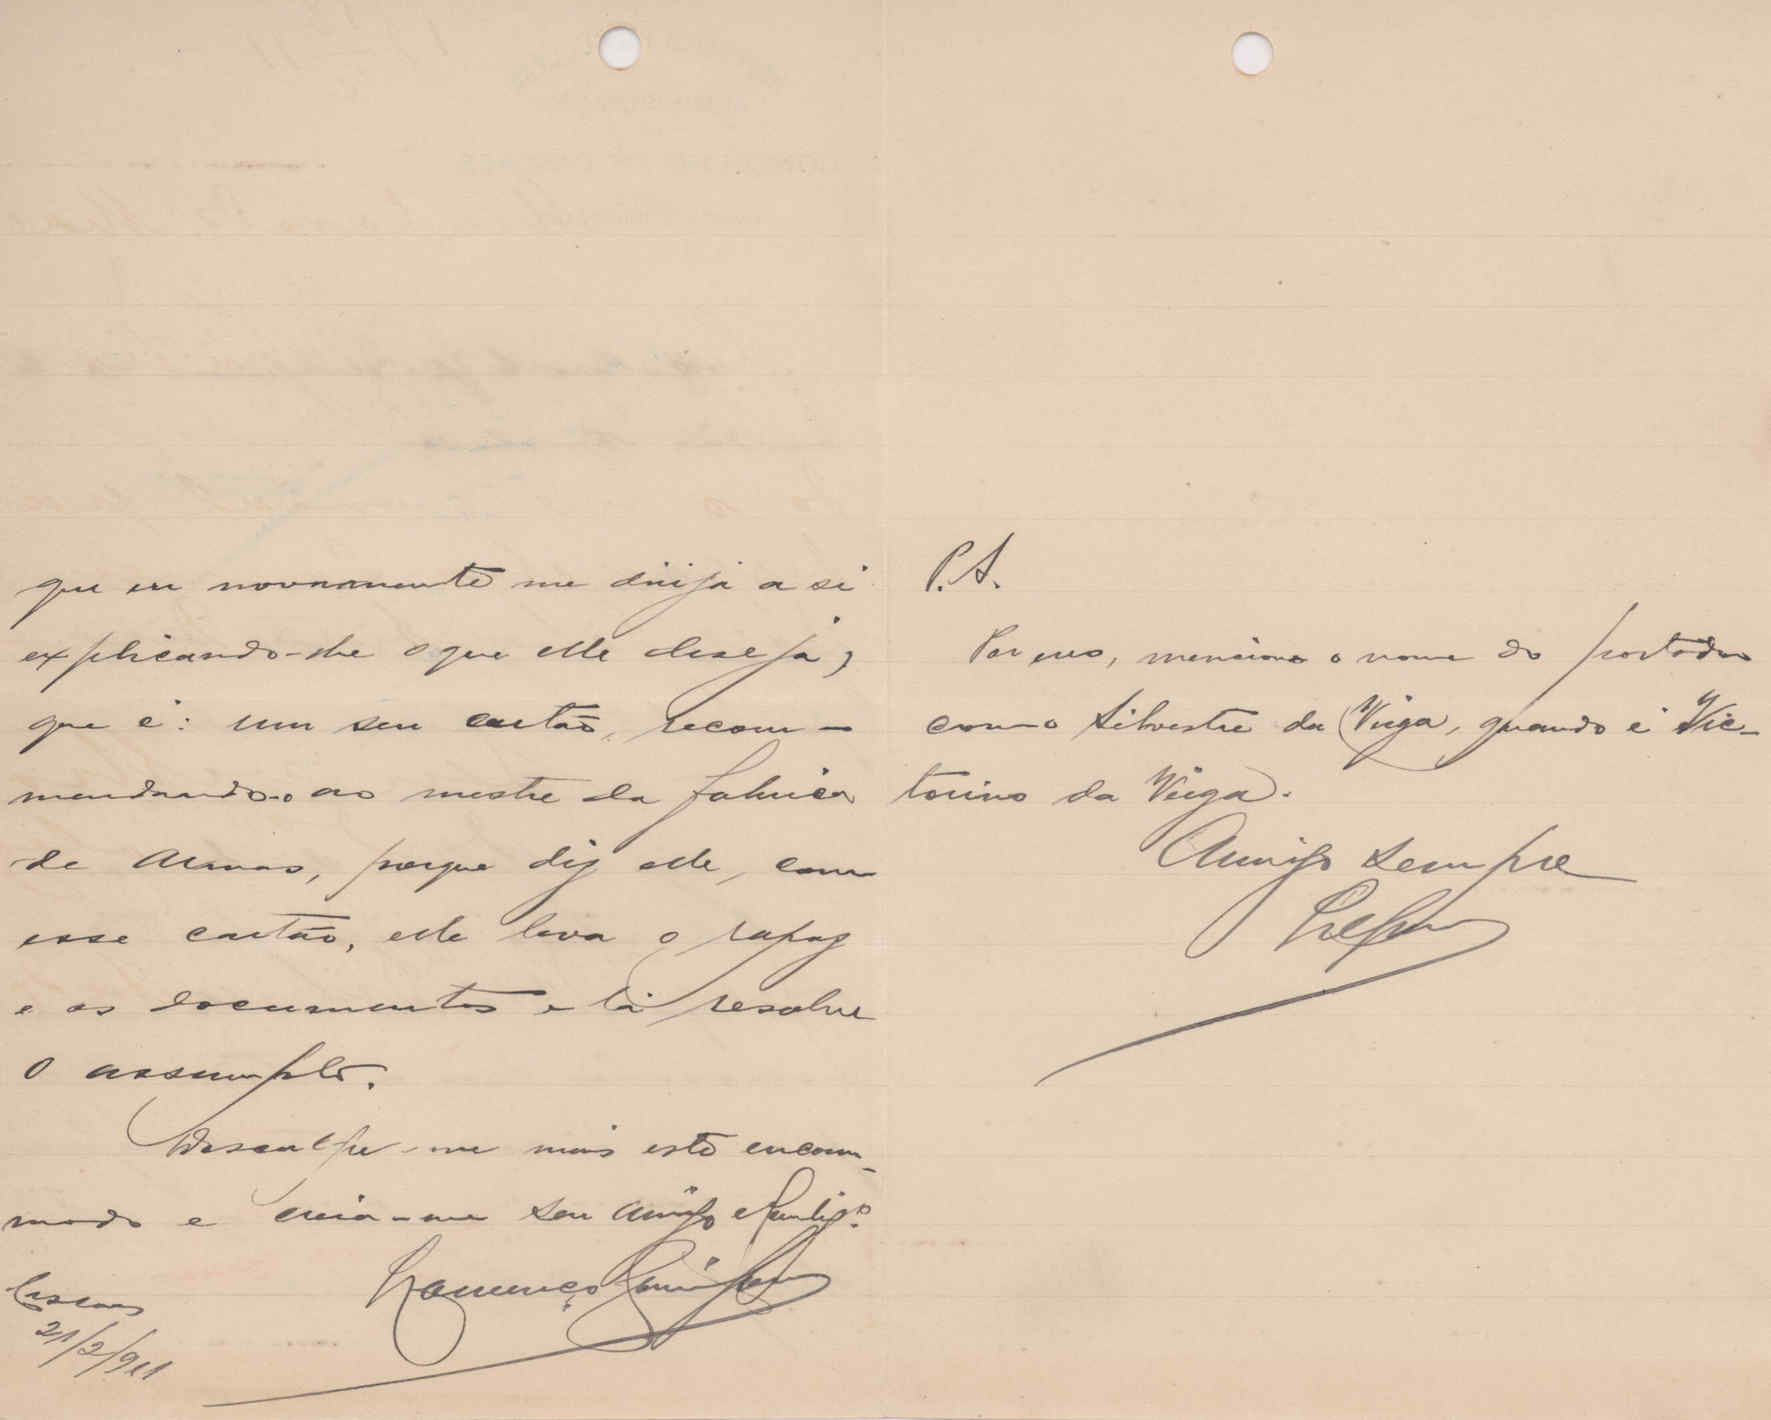 que eu novamente me dirija a si
explicando-lhe o que elle deseja,
que é: um seu cartão, recom-
mendando-o ao mestre da fabrica
de Armas, porque diz elle, com
esse cartão, elle leva o rapaz
e os documentos e lá resolve
o assumpto.
Desculpe-me mais este encom-
modo e creia-me seu amigo e
Lourenço
Cascaes
21/2/911
P.S.
Por erro, menciono o nome do portador
como Silvestre da Veiga, quando é Vic-
torino da Veiga.
Amigo sempre